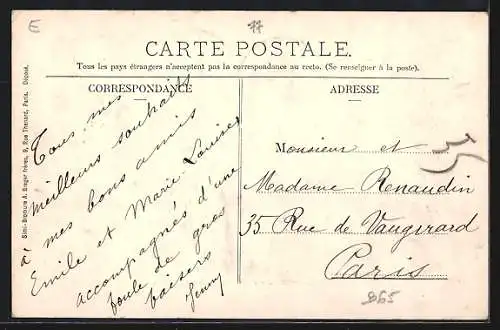 E
77
CARTE POSTALE.
Tous les pays étrangers n'acceptent pas la correspondance au recto. (Se renseigner à la poste).
CORRESPONDANCE
Tous mes
meilleurs souhaits
à mes bons amis
Emile et Marie-Louise,
accompagnés d'une
foule de gros
baisers
Jenny
ADRESSE
Monsieur et
Madame Renaudin
35 Rue de Vaugirard
Paris
865
Simi-Bromure A. Breger frères, 9, Rue Thénard, Paris. Déposé.